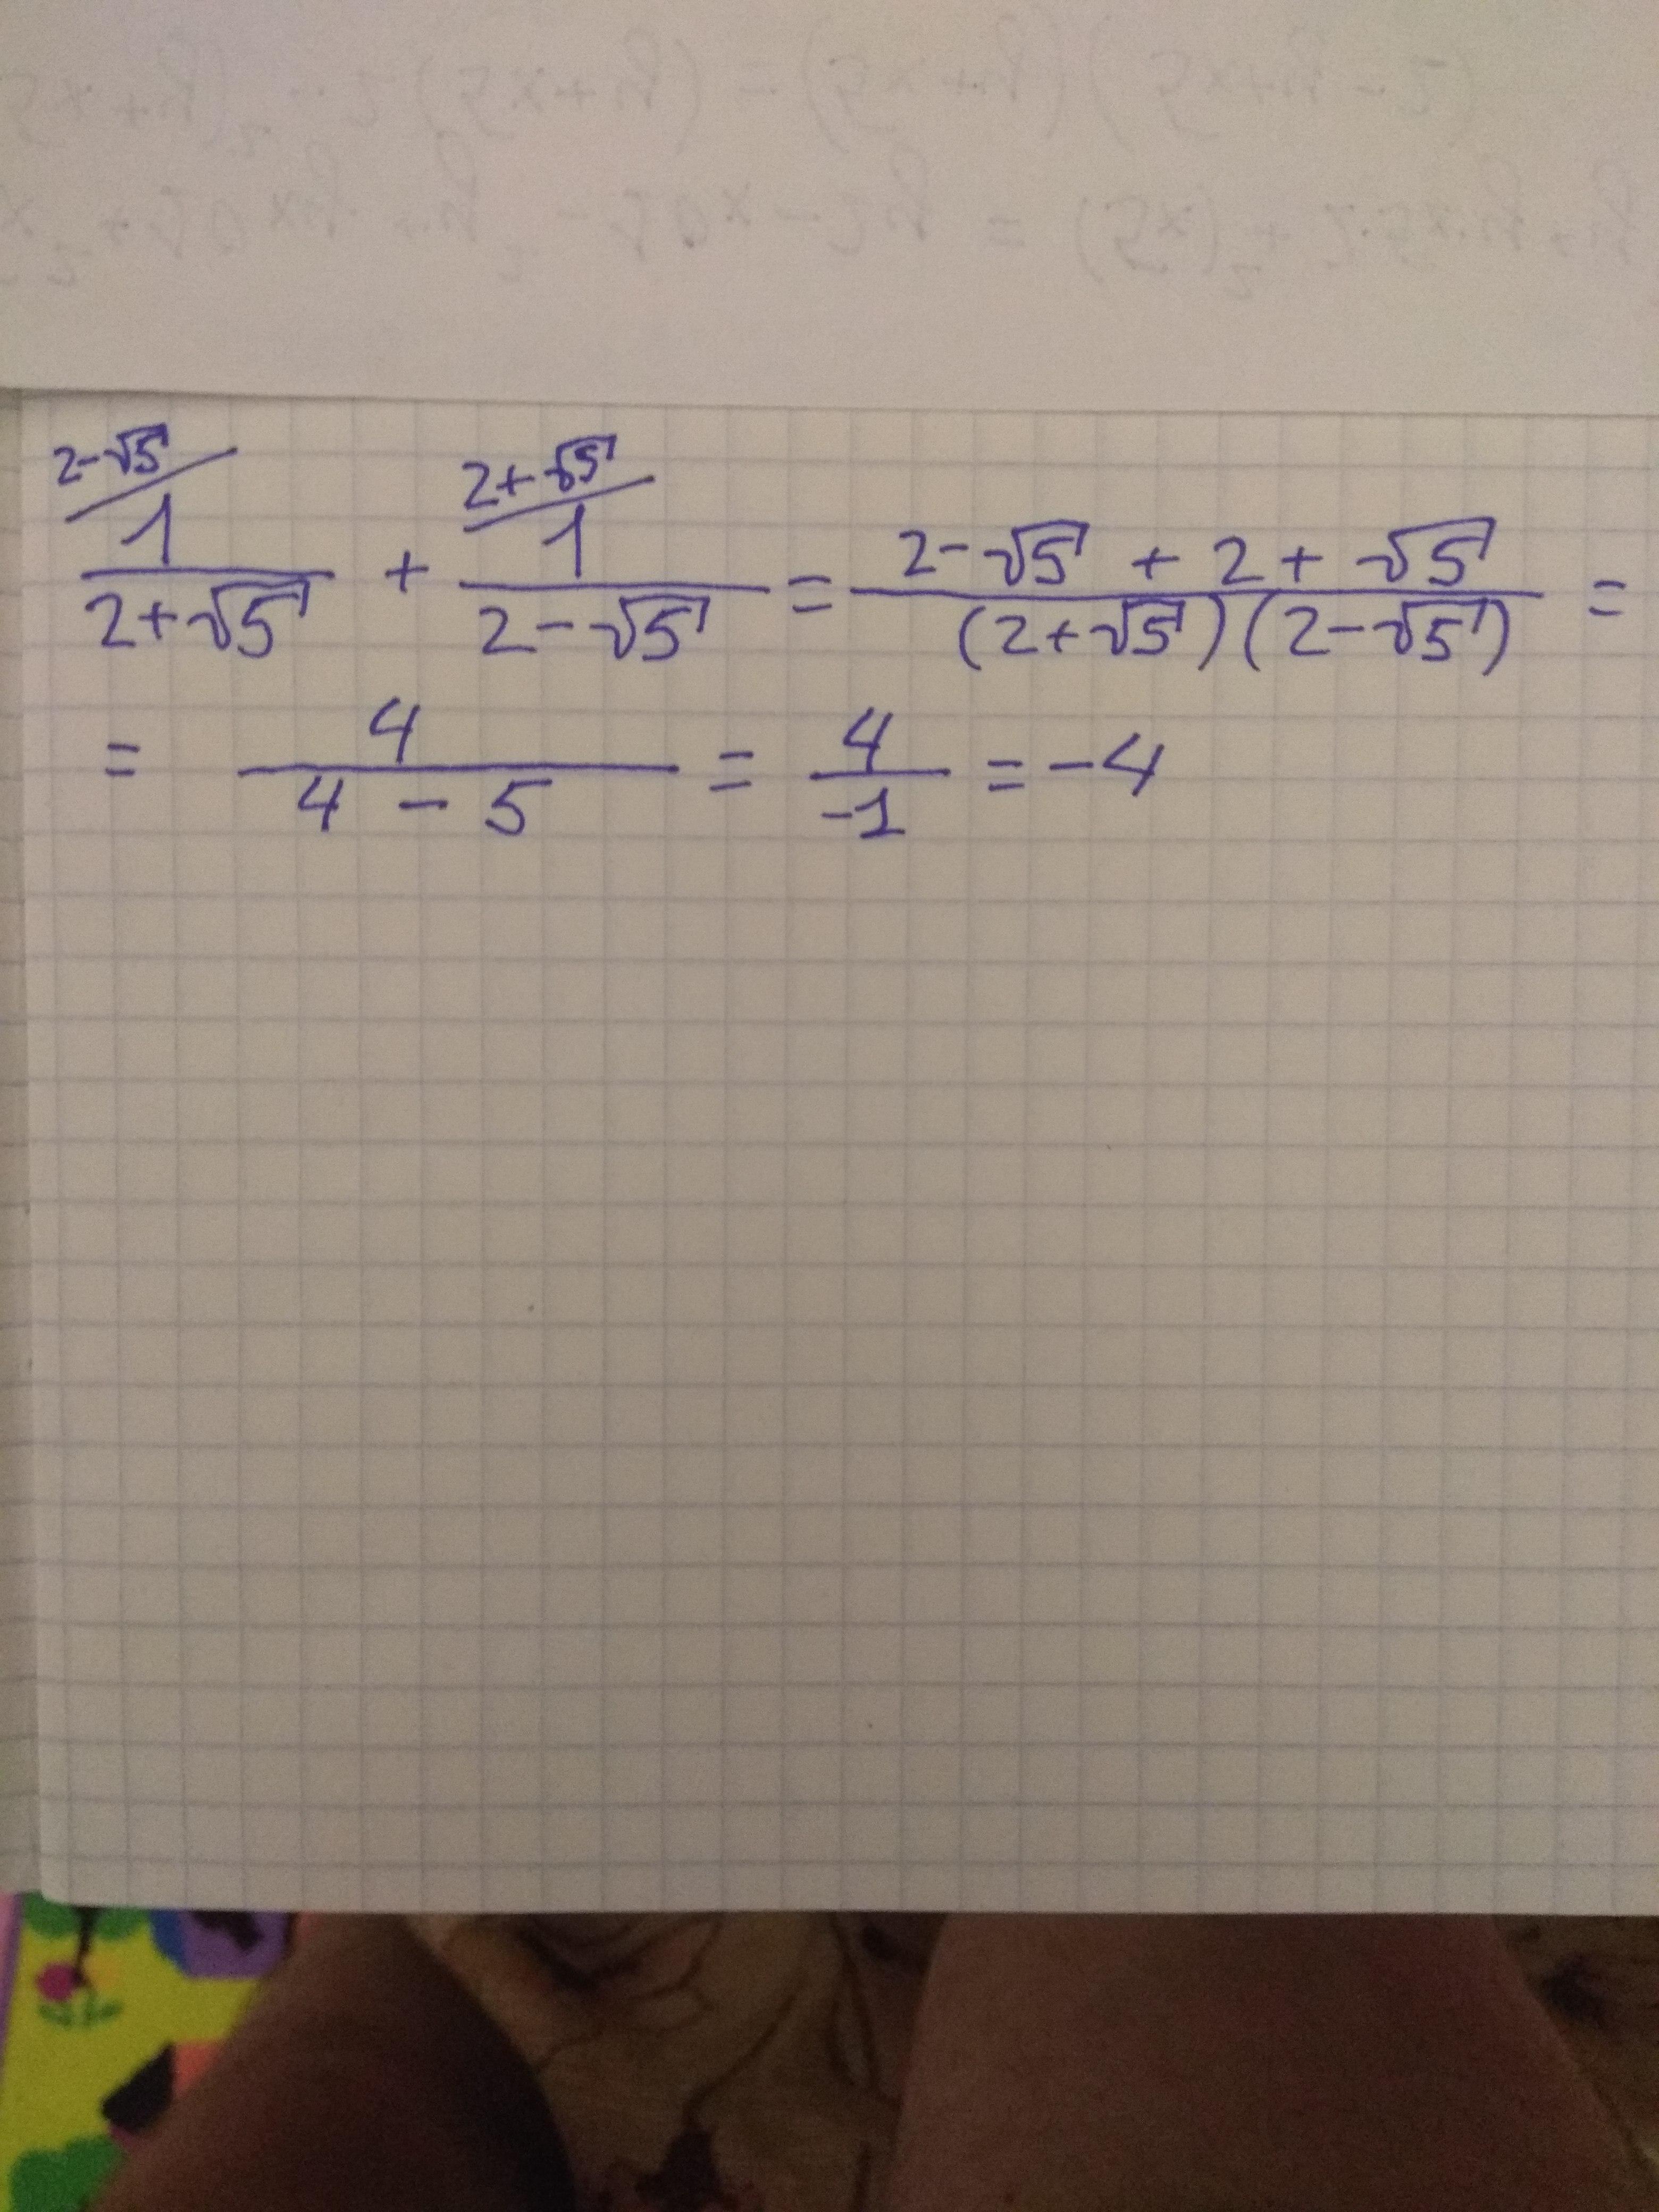 2-√5 / 1/(2+√5) + 2+√5 / 1/(2-√5) = (2-√5 + 2+√5)/((2+√5)(2-√5)) =
= 4/(4-5) = 4/-1 = -4